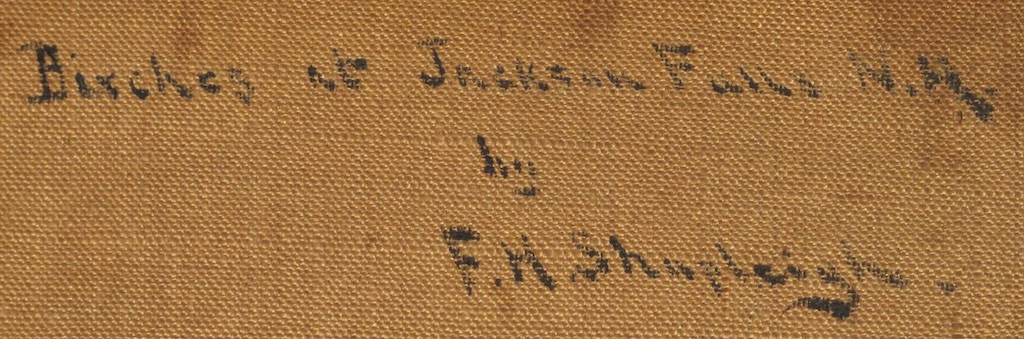 Birches at Jackson Falls N.H.
by
F. H. Shapleigh.